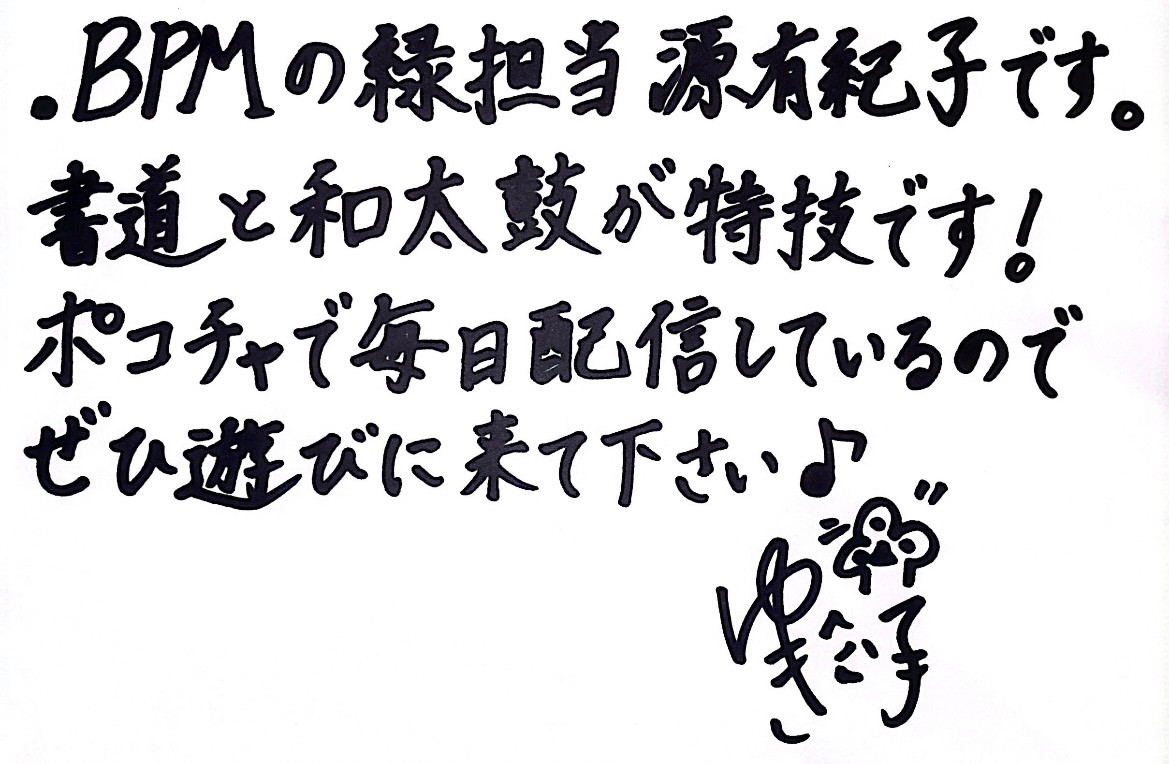 .BPMの緑担当 源有紀子です。
書道と和太鼓が特技です!
ポコチャで毎日配信しているので
ぜひ遊びに来て下さい♪
ゆき